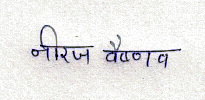 नीरज वैष्णव